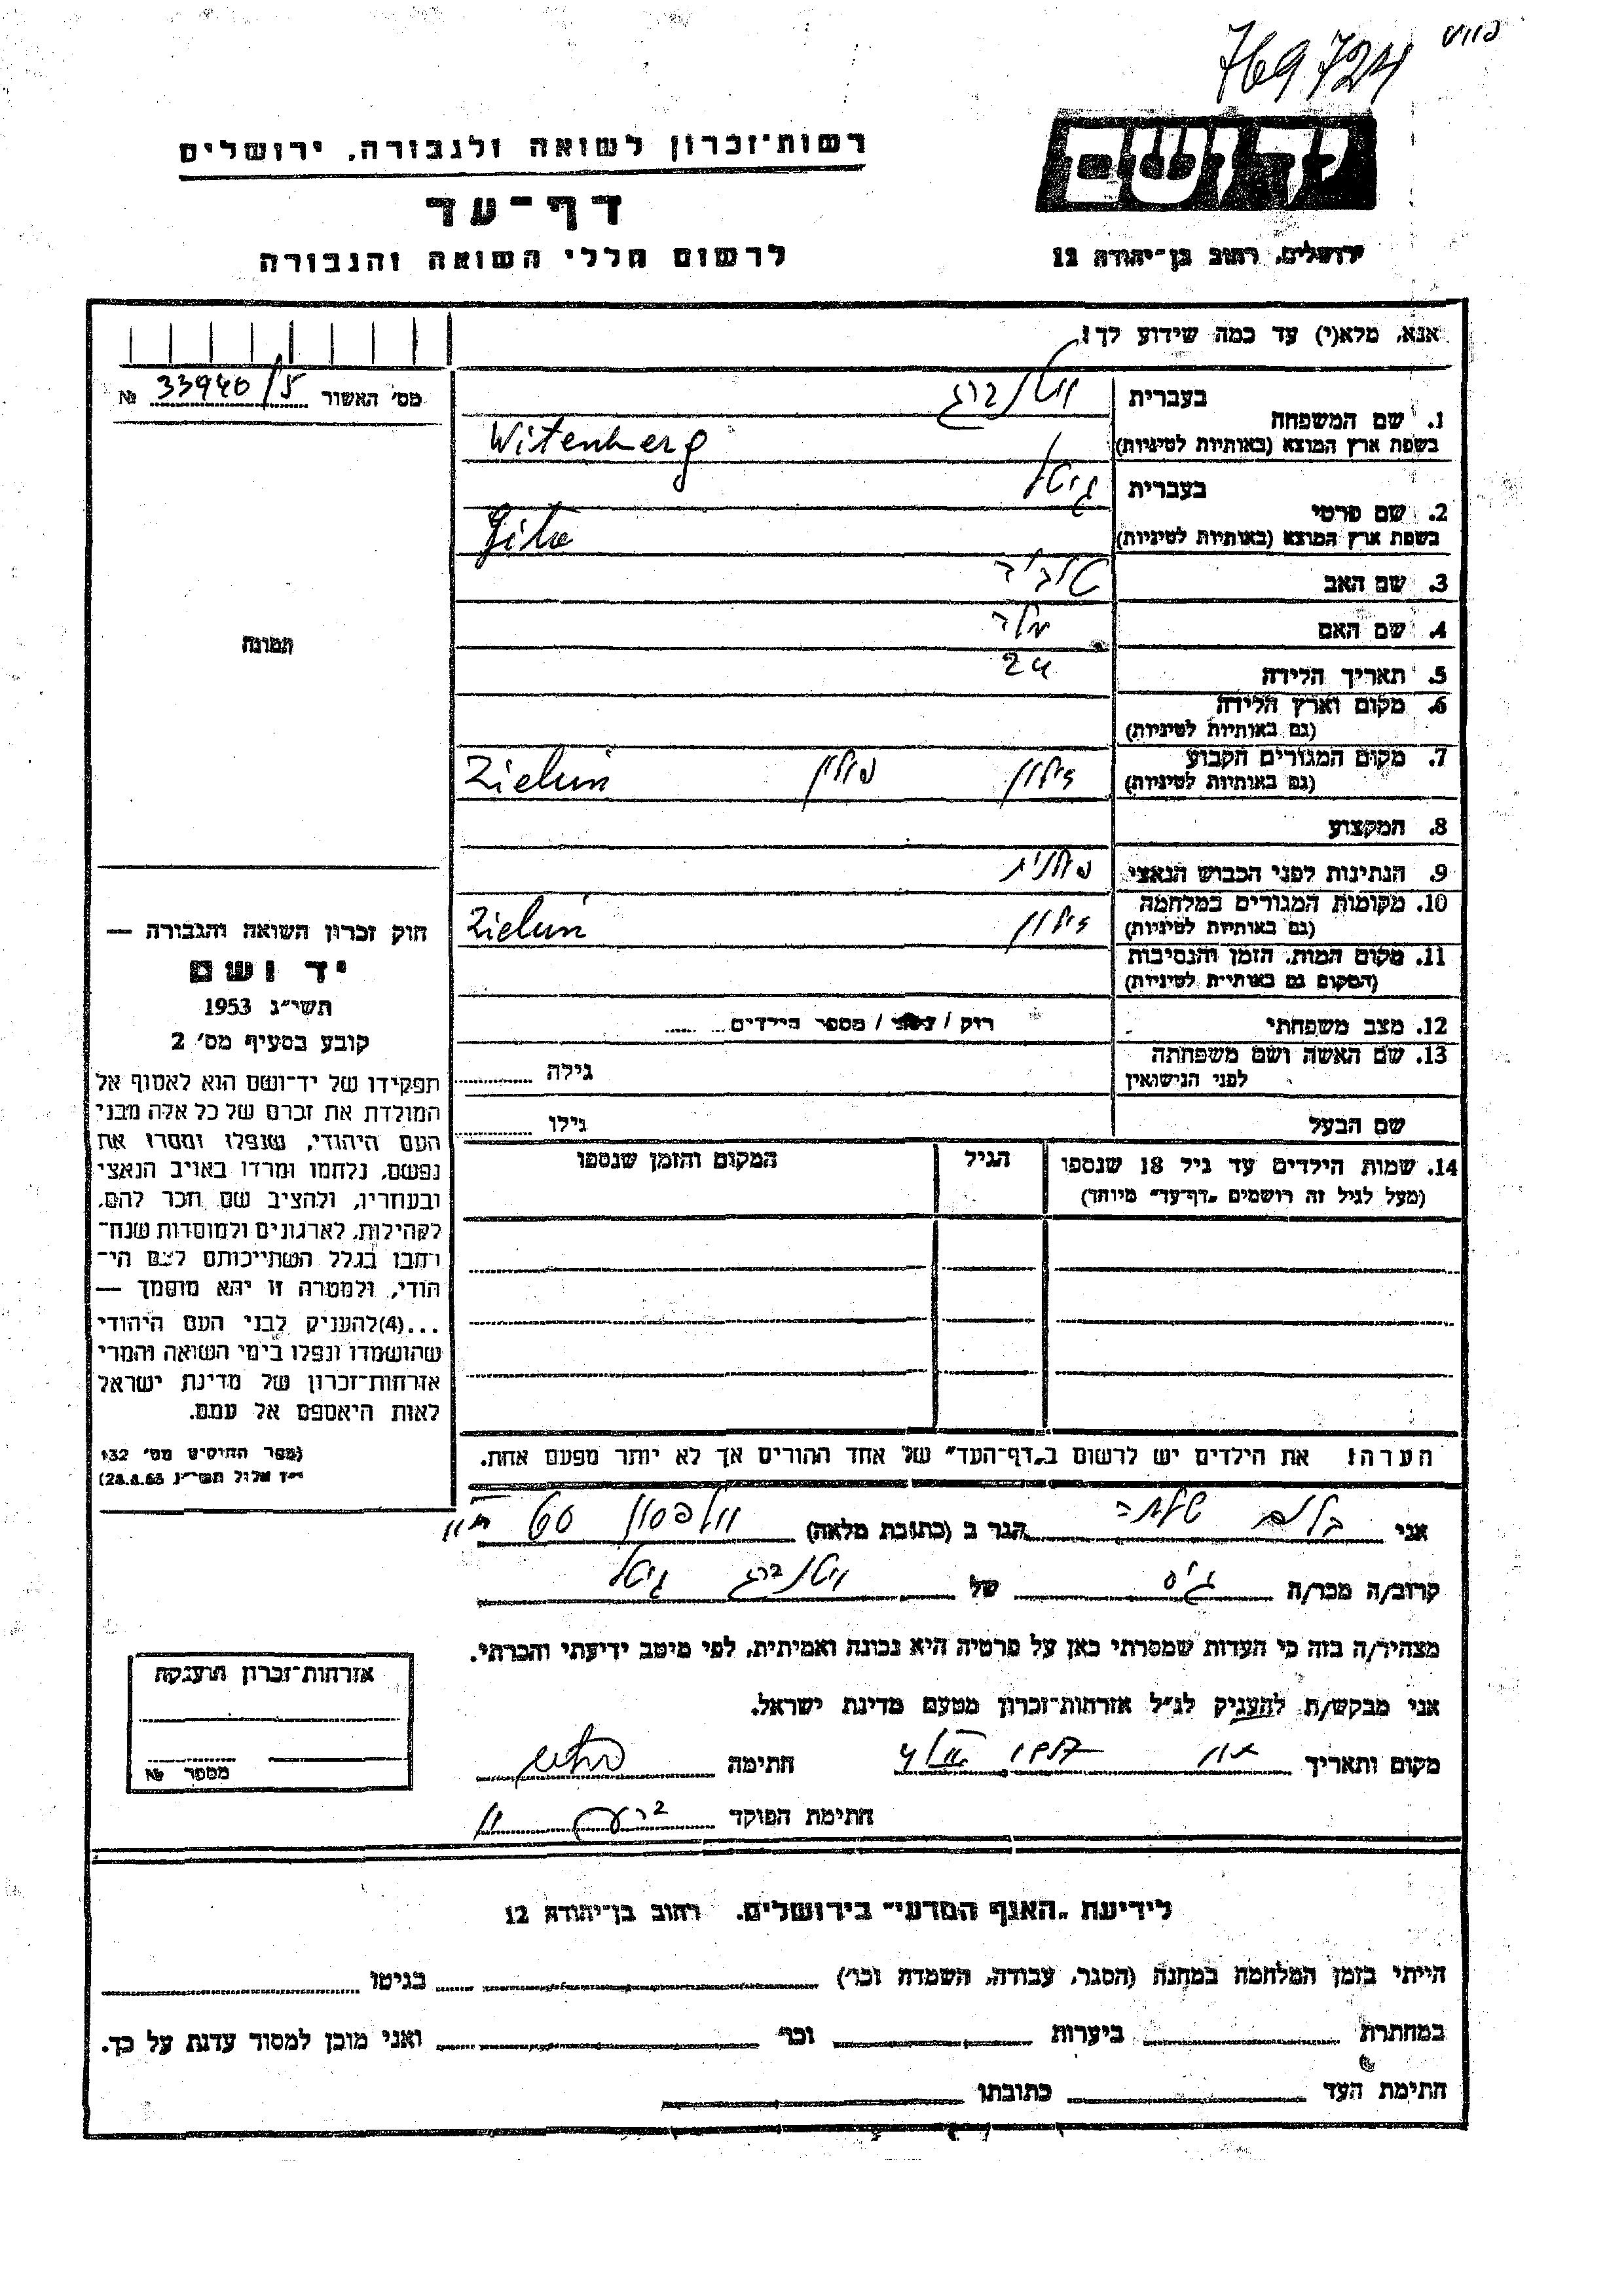 769724
יד ושם
רשות־זכרון לשואה ולגבורה, ירושלים
דף־עד
לרשום חללי השואה והגבורה
ירושלים, רחוב בן־יהודה 12
אנא, מלא(י) עד כמה שידוע לך!
מס' האשור 33940/5 №
1. שם המשפחה
בעברית ויטנברג
בשפת ארץ המוצא (באותיות לטיניות) Witenberg
2. שם פרטי
בעברית גיטל
בשפת ארץ המוצא (באותיות לטיניות) Gita
3. שם האב
4. שם האם
5. תאריך הלידה 24
6. מקום וארץ הלידה
(גם באותיות לטיניות)
7. מקום המגורים הקבוע
(גם באותיות לטיניות) פולין Zielun
8. המקצוע
9. הנתינות לפני הכבוש הנאצי פולנית
10. מקומות המגורים במלחמה
(גם באותיות לטיניות) Zielun
11. מקום המות, הזמן והנסיבות
(המקום גם באותיות לטיניות)
12. מצב משפחתי רוק / / מספר הילדים
13. שם האשה ושם משפחתה
לפני הנישואין גילה
שם הבעל גילו
14. שמות הילדים עד גיל 18 שנספו
(מעל לגיל זה רושמים „דף־עד" מיוחד)
הגיל
המקום והזמן שנספו
הערה! את הילדים יש לרשום ב„דף־העד" של אחד ההורים אך לא יותר מפעם אחת.
תמונה
חוק זכרון השואה והגבורה —
יד ושם
תשי"ג 1953
קובע בסעיף מס' 2
תפקידו של יד־ושם הוא לאסוף אל
המולדת את זכרם של כל אלה מבני
העם היהודי, שנפלו ומסרו את
נפשם, נלחמו ומרדו באויב הנאצי
ובעוזריו, ולהציב שם וזכר להם,
לקהילות, לארגונים ולמוסדות שנח־
רחבו בגלל השתייכותם לעם הי־
הודי, ולמטרה זו יהא מוסמך —
...(4) להעניק לבני העם היהודי
שהושמדו ונפלו בימי השואה והמרי
אזרחות־זכרון של מדינת ישראל
לאות היאספם אל עמם.
(ספר החוקים מס' 132
י"ז אלול תשי"ג 28.8.53)
אני הגר ב (כתובת מלאה) וולפסון
קרוב/ה מכר/ה גיס של ויטנברג גיטל
מצהיר/ה בזה כי העדות שמסרתי כאן על פרטיה היא נכונה ואמיתית, לפי מיטב ידיעתי והכרתי.
אני מבקש/ת להעניק לנ"ל אזרחות־זכרון מטעם מדינת ישראל.
מקום ותאריך חתימה
חתימת הפוקד
אזרחות־זכרון הוענקה
מספר №
לידיעת „האגף המדעי" בירושלים, רחוב בן־יהודה 12
הייתי בזמן המלחמה במחנה (הסגר, עבודה, השמדה וכו') בגיטו
במחתרת ביערות וכו' ואני מוכן למסור עדות על כך.
חתימת העד כתובתו